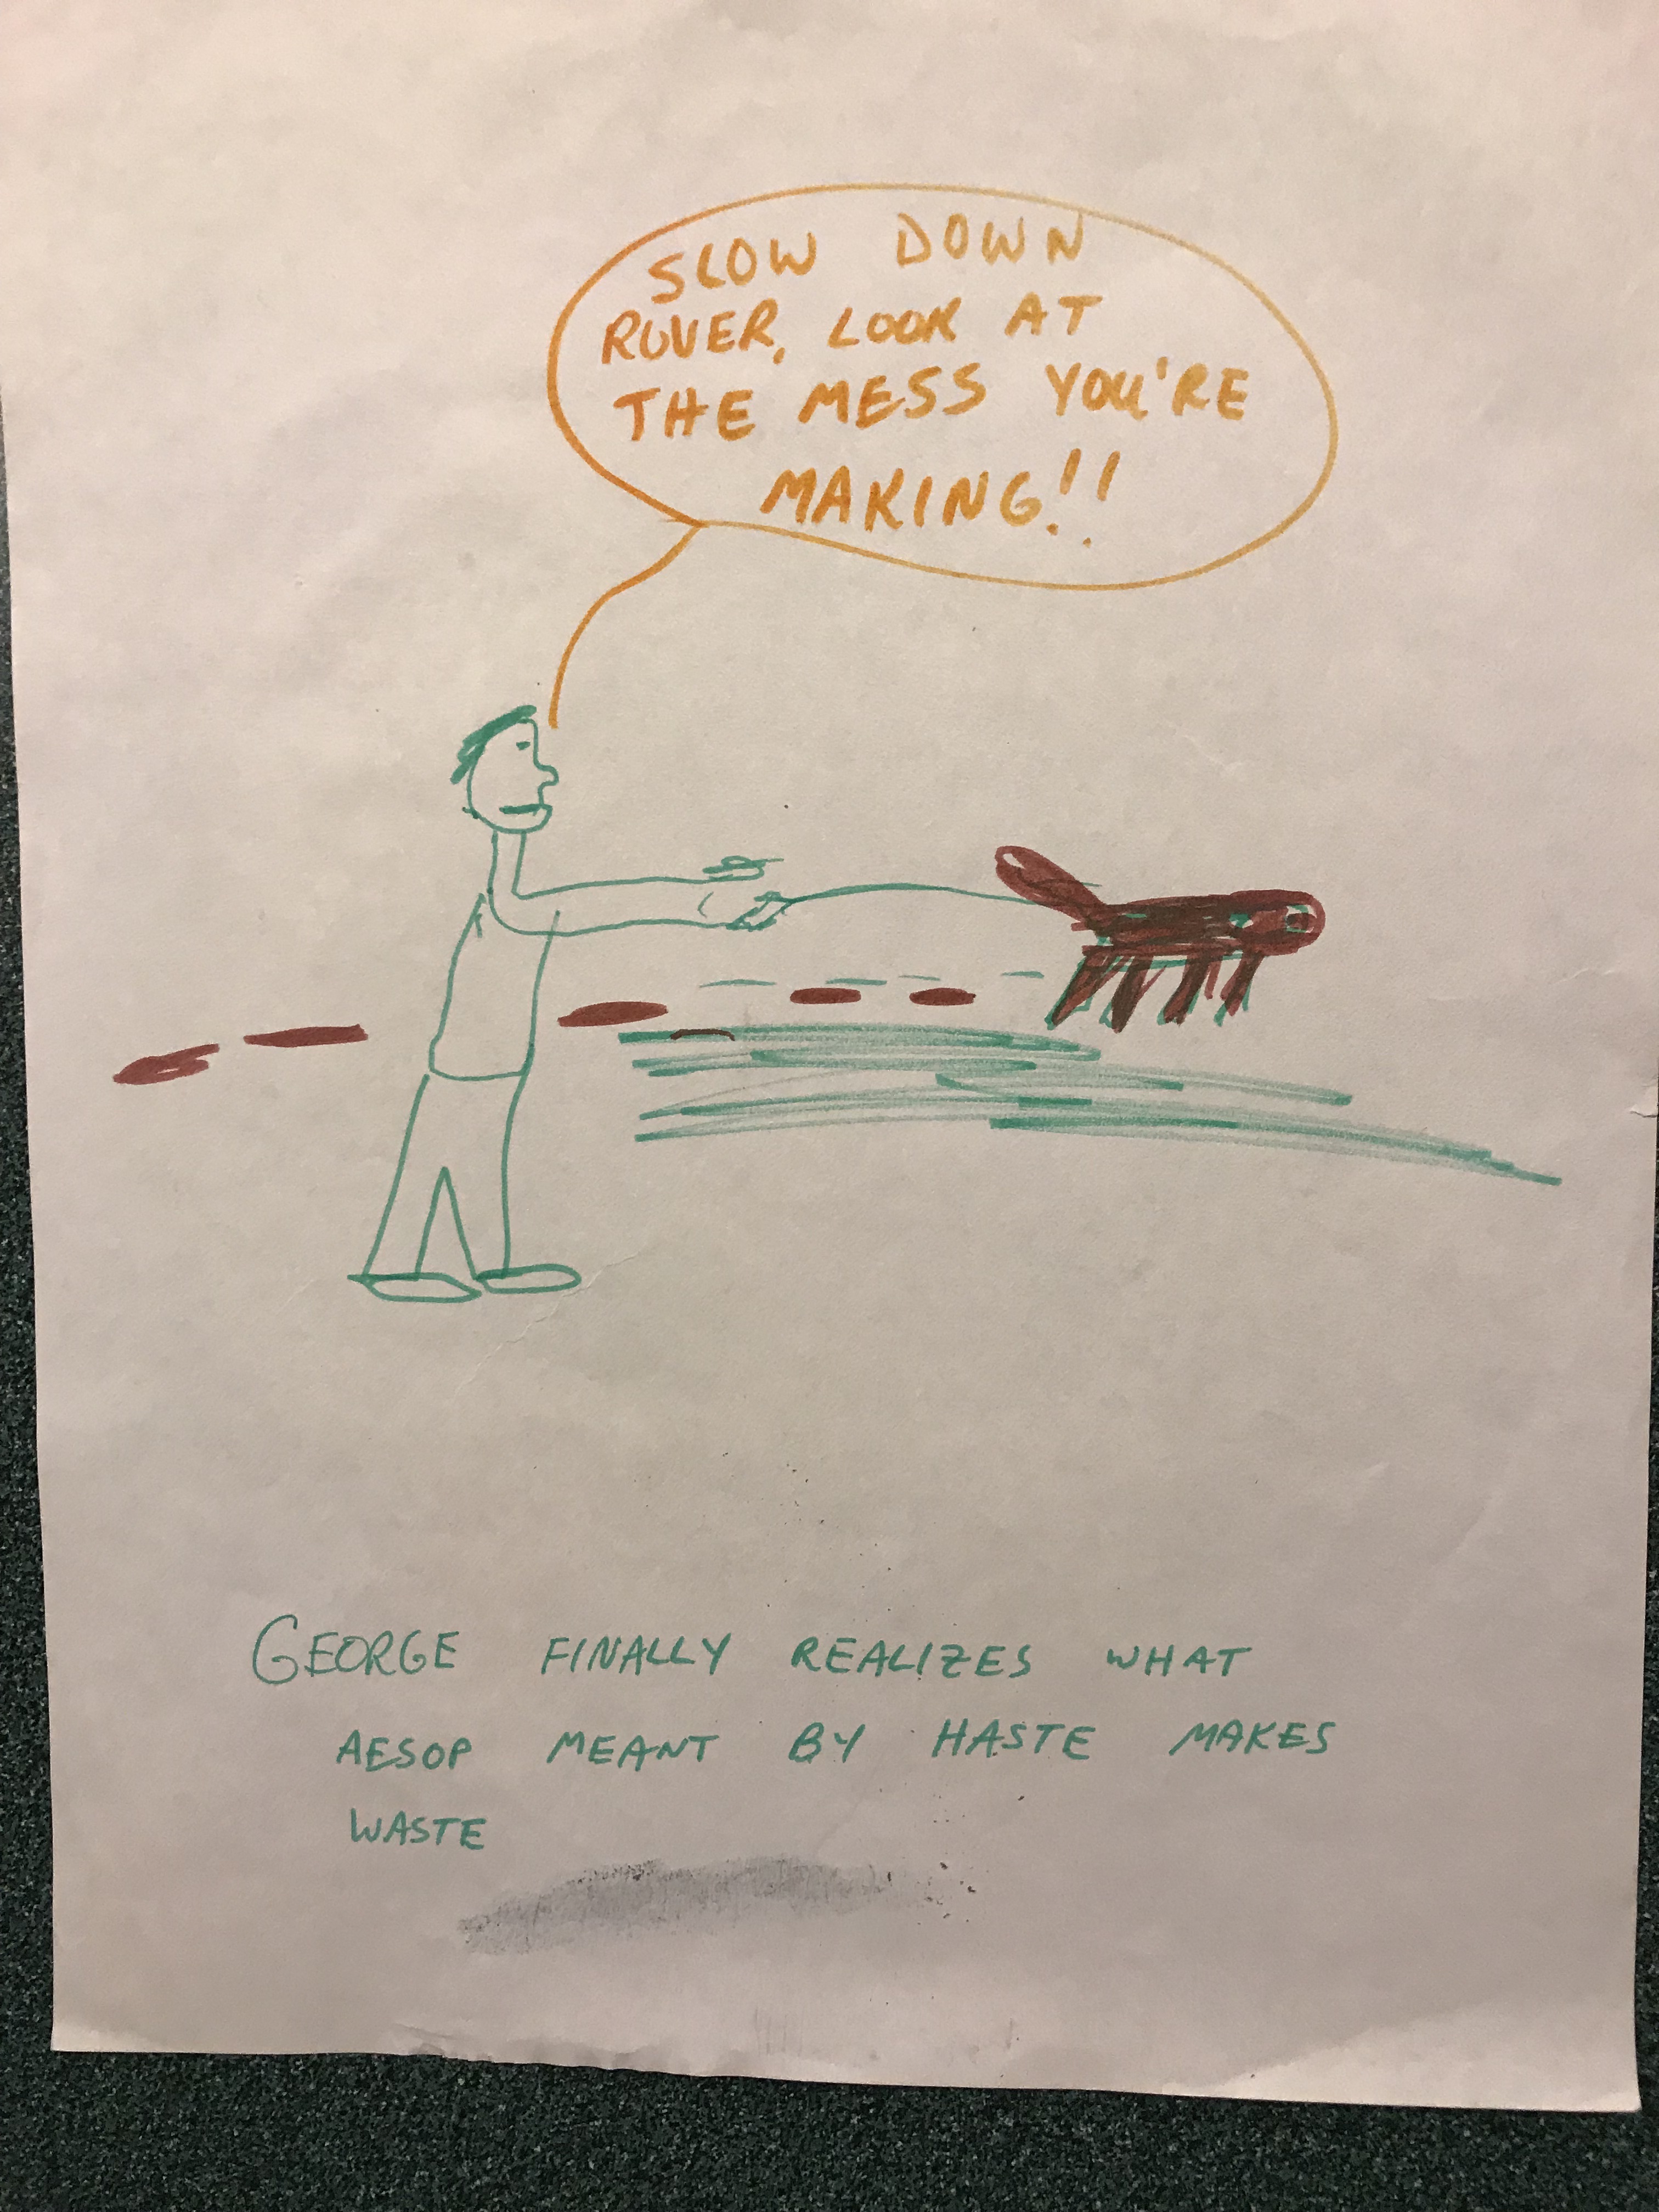 SLOW DOWN
ROVER, LOOK AT
THE MESS YOU'RE
MAKING!!
GEORGE FINALLY REALIZES WHAT
AESOP MEANT BY HASTE MAKES
WASTE